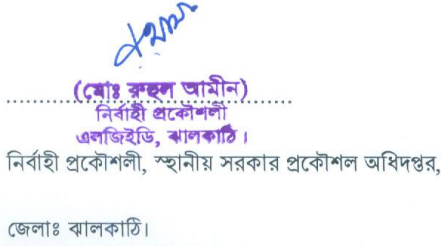 (মোঃ রুহুল আমীন)
নির্বাহী প্রকৌশলী
এলজিইডি, ঝালকাঠি।
নির্বাহী প্রকৌশলী, স্থানীয় সরকার প্রকৌশল অধিদপ্তর,
জেলাঃ ঝালকাঠি।